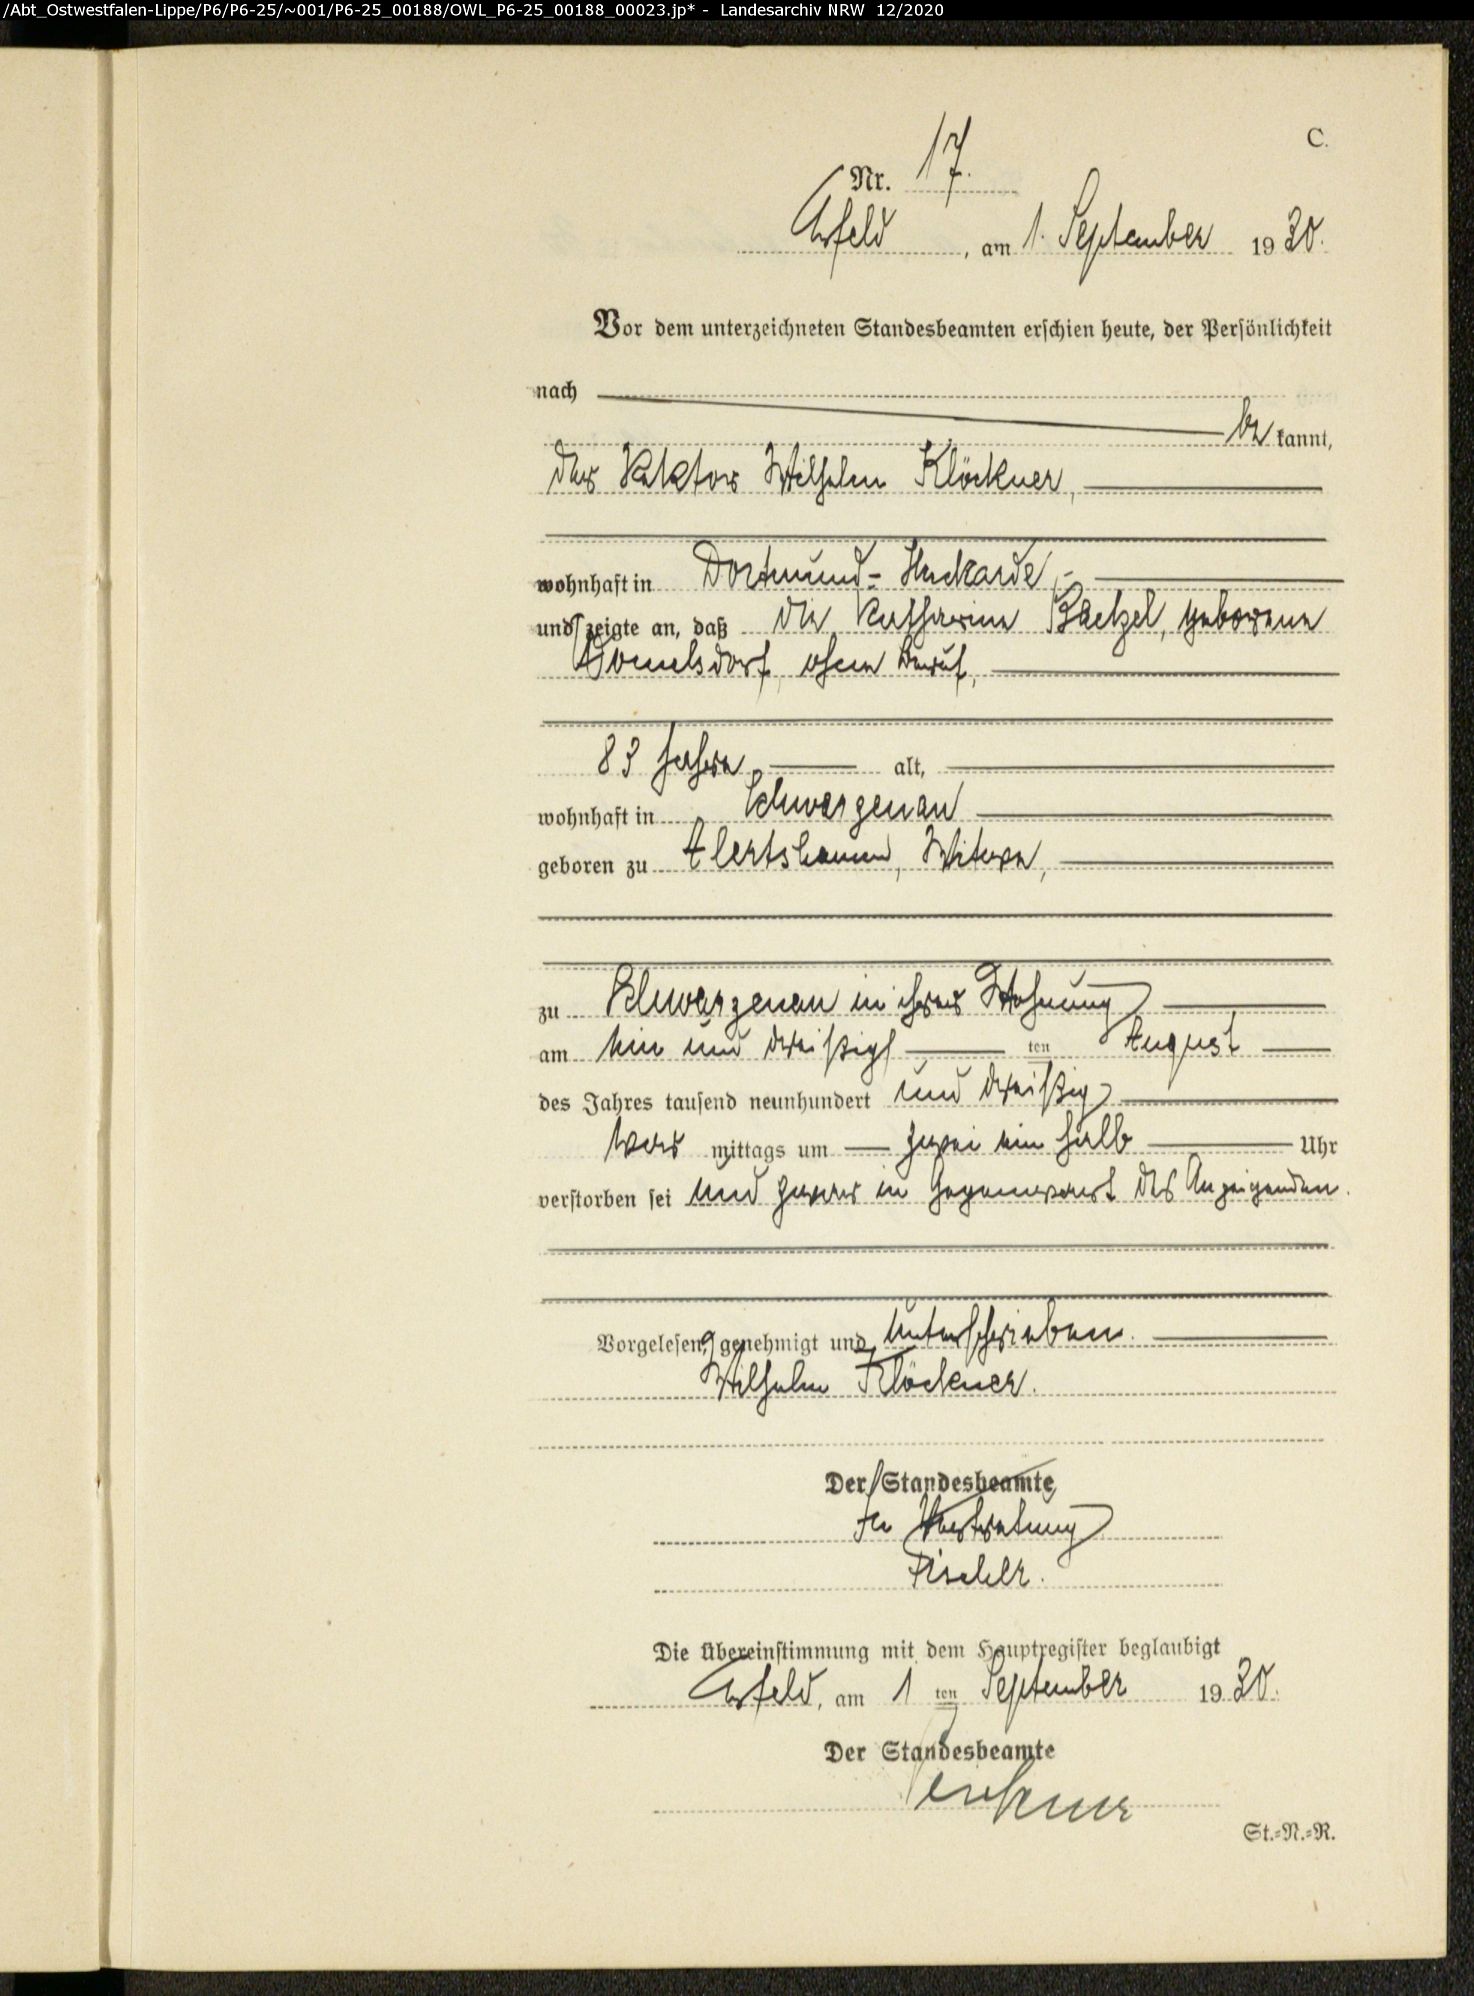 /Abt_Ostwestfalen-Lippe/P6/P6-25/~001/P6-25_00188/OWL_P6-25_00188_00023.jp* - Landesarchiv NRW 12/2020
C.
Nr. 17.
Arfeld, am 1. September 1930.
Vor dem unterzeichneten Standesbeamten erschien heute, der Persönlichkeit
nach
be kannt,
der Rektor Wilhelm Klöckner,
wohnhaft in Dortmund-Huckarde,
und zeigte an, daß die Katharine Baetzel, geborene
Homelsdorf, ohne Beruf,
83 Jahre alt,
wohnhaft in Schwarzenau
geboren zu Alertshausen, Witwe,
zu Schwarzenau in ihrer Wohnung
am ein und dreißigs ten August
des Jahres tausend neunhundert und dreißig
vor mittags um zwei ein halb Uhr
verstorben sei und zwar in Gegenwart des Anzeigenden.
Vorgelesen, genehmigt und unterschrieben.
Wilhelm Klöckner.
Der Standesbeamte
In Vertretung
Fischer.
Die Übereinstimmung mit dem Hauptregister beglaubigt
Arfeld, am 1 ten September 1930.
Der Standesbeamte
St.-N.-R.